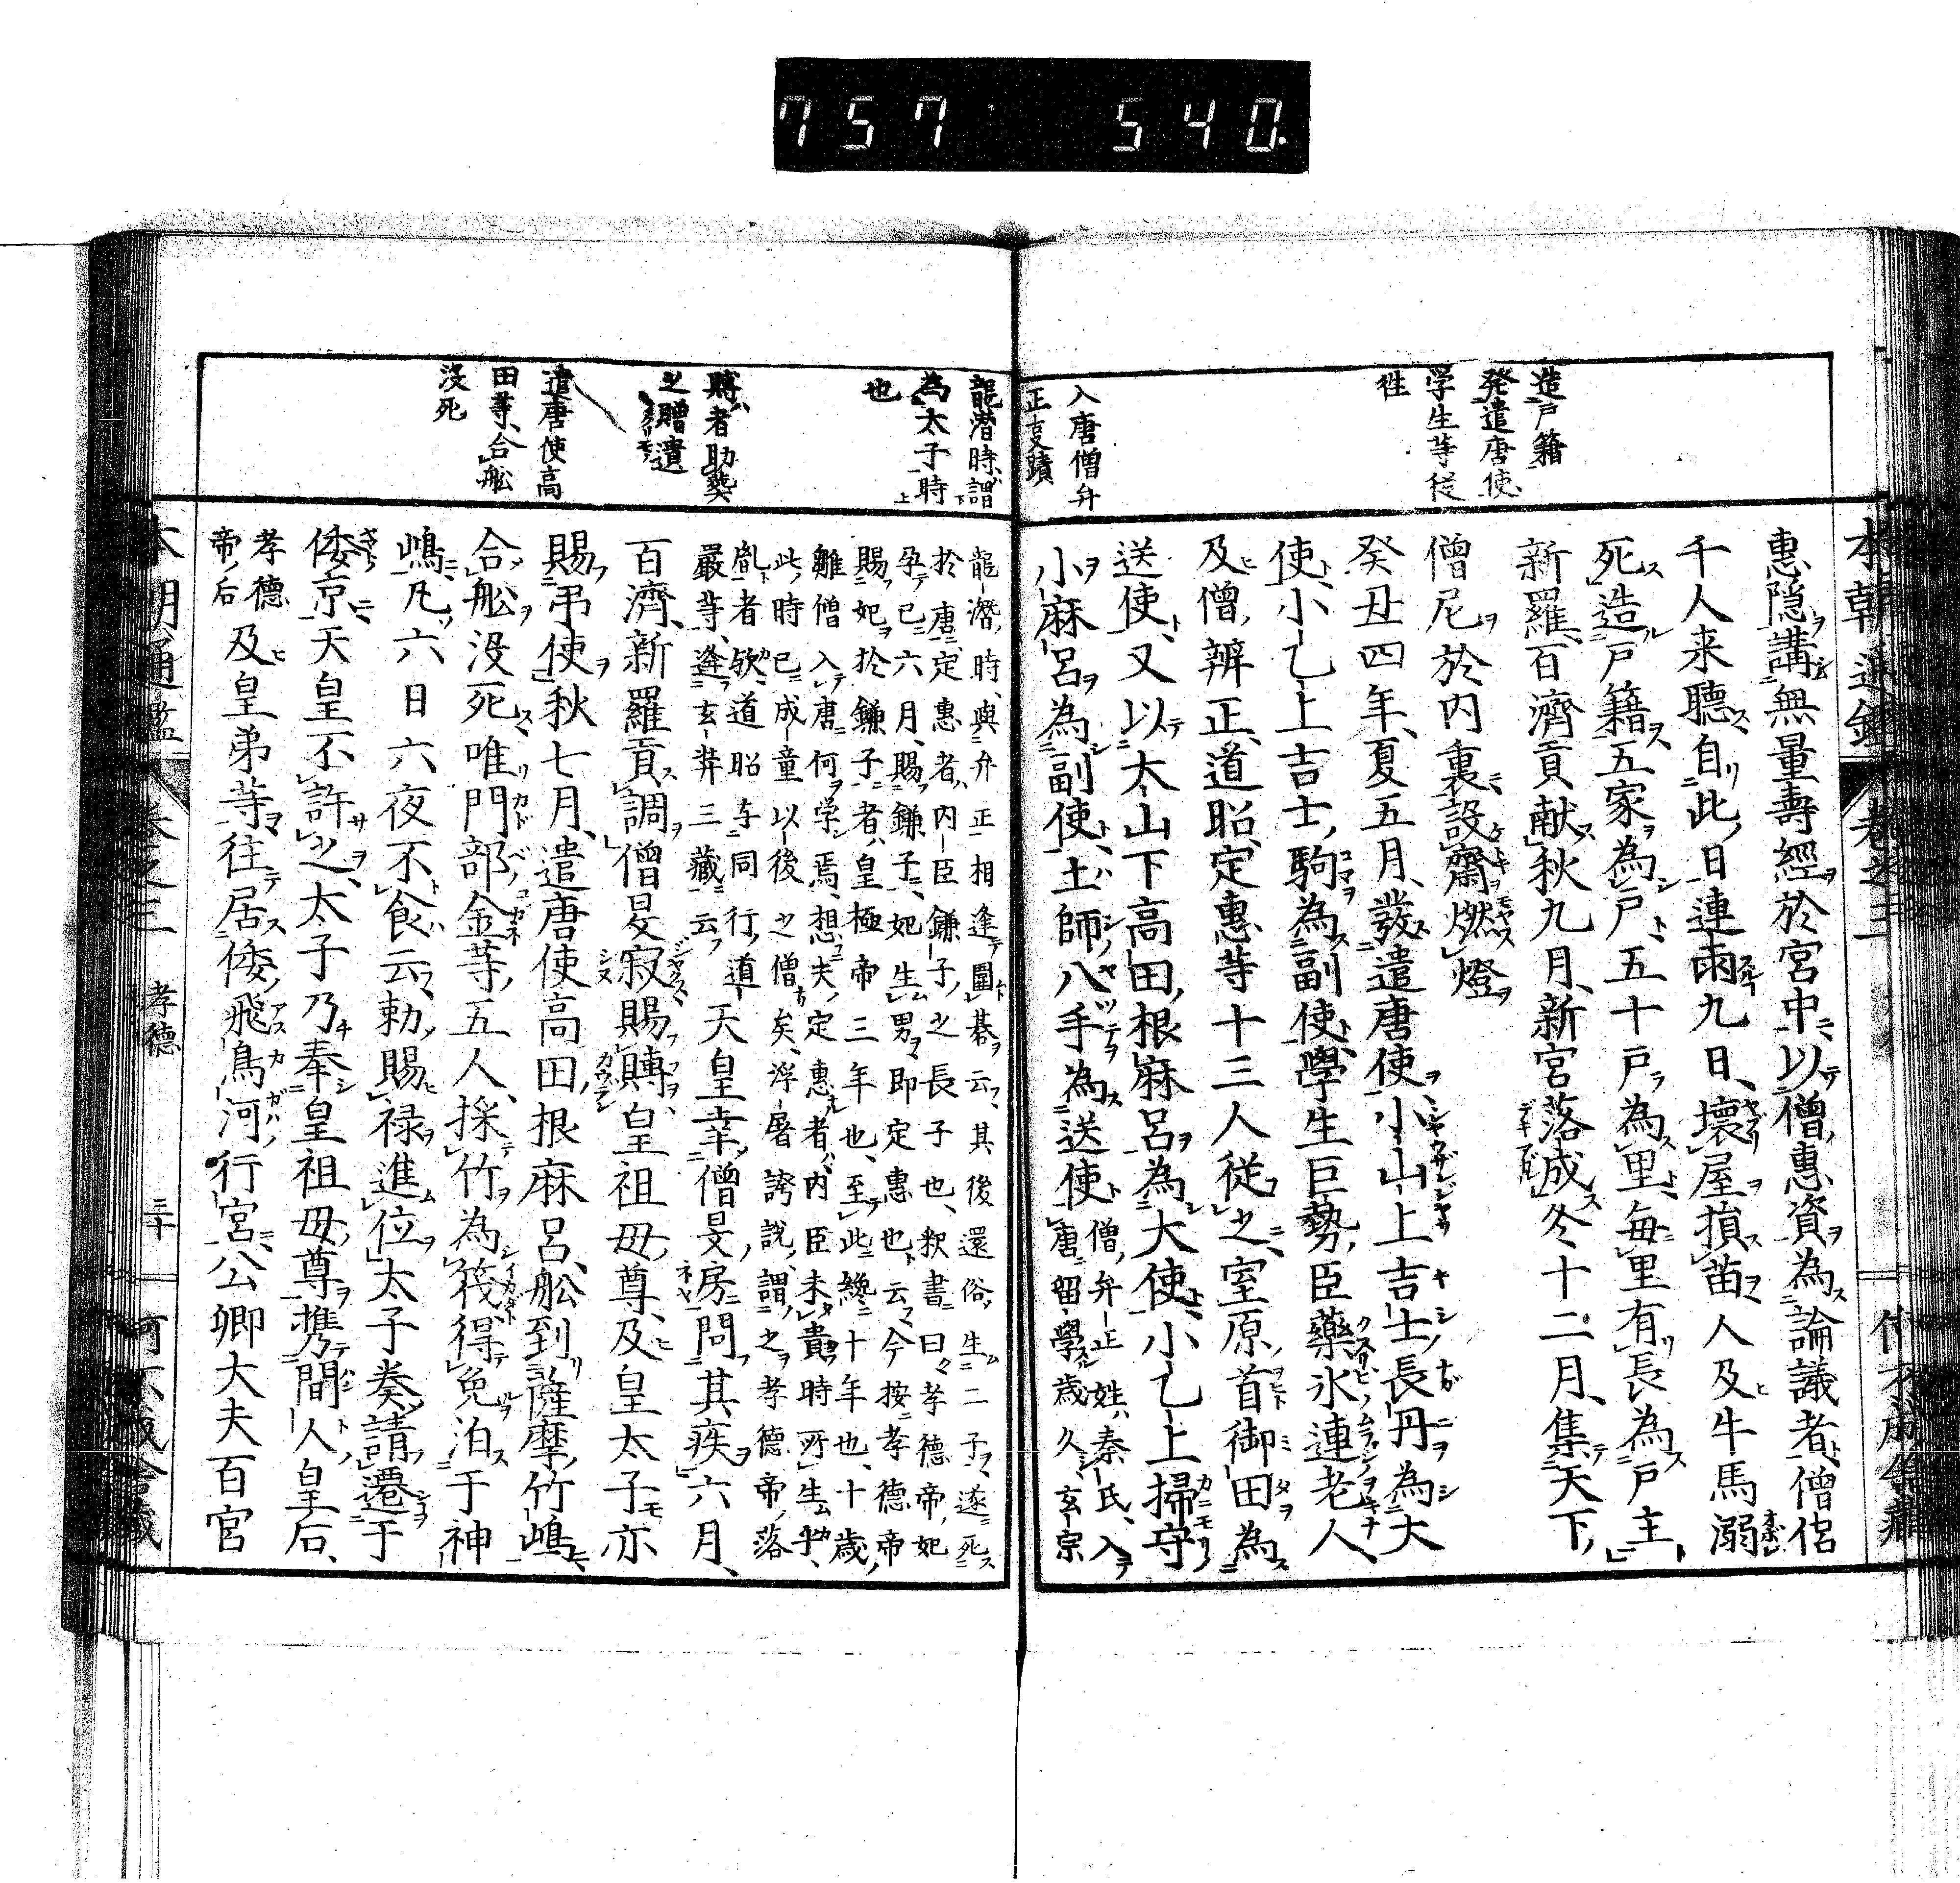 757 540
造戸籍
発遣唐使
学生等従
徃
入唐僧弁
正事蹟
惠隠講無量壽經於宮中以僧惠資為論議者僧侶
千人来聽自此日連雨九日壞屋損苗人及牛馬溺
死造戸籍五家為戸五十戸為里毎里有長為戸主
新羅百濟貢献秋九月新宮落成冬十二月集天下
僧尼於内裏設齋燃燈
癸丑四年夏五月發遣唐使小山上吉士長丹為大
使小乙上吉士駒為副使學生巨勢臣藥氷連老人
及僧辨正道昭定惠等十三人従之室原首御田為
送使又以大山下高田根麻呂為大使小乙上掃守
小麻呂為副使土師八手為送使
僧弁正姓秦氏入
唐留學歳久玄宗
龍潜時謂
為太子時
也
賻者助葬
之贈遺
遣唐使高
田等合舩
沒死
龍潜時與弁正相逢圍碁云其後還俗生二子遂死
於唐定惠者内臣鎌子之長子也釈書曰孝德帝妃
孕已六月賜鎌子妃生男即定惠也云今按孝德帝
賜妃於鎌子者皇極帝三年也至此纔十年也十歳
雖僧入唐何学焉想夫定惠者内臣未貴時所生乎
此時已成童以後之僧矣浮屠誇説謂之孝德帝落
胤者欤道昭与同行道
嚴等逢玄弉三藏云
天皇幸僧旻房問其疾六月
百濟新羅貢調僧旻寂賜賻皇祖母尊及皇太子亦
賜弔使秋七月遣唐使高田根麻呂舩到薩摩竹嶋
合舩沒死唯門部金等五人採竹為筏得免泊于神
嶋凡六日六夜不食云勅賜禄進位太子奏請遷于
倭京天皇不許之太子乃奉皇祖母尊携間人皇后
孝德
帝后
及皇弟等往居倭飛鳥河行宮公卿大夫百官
本朝通鑑
卷之三
孝德
三十